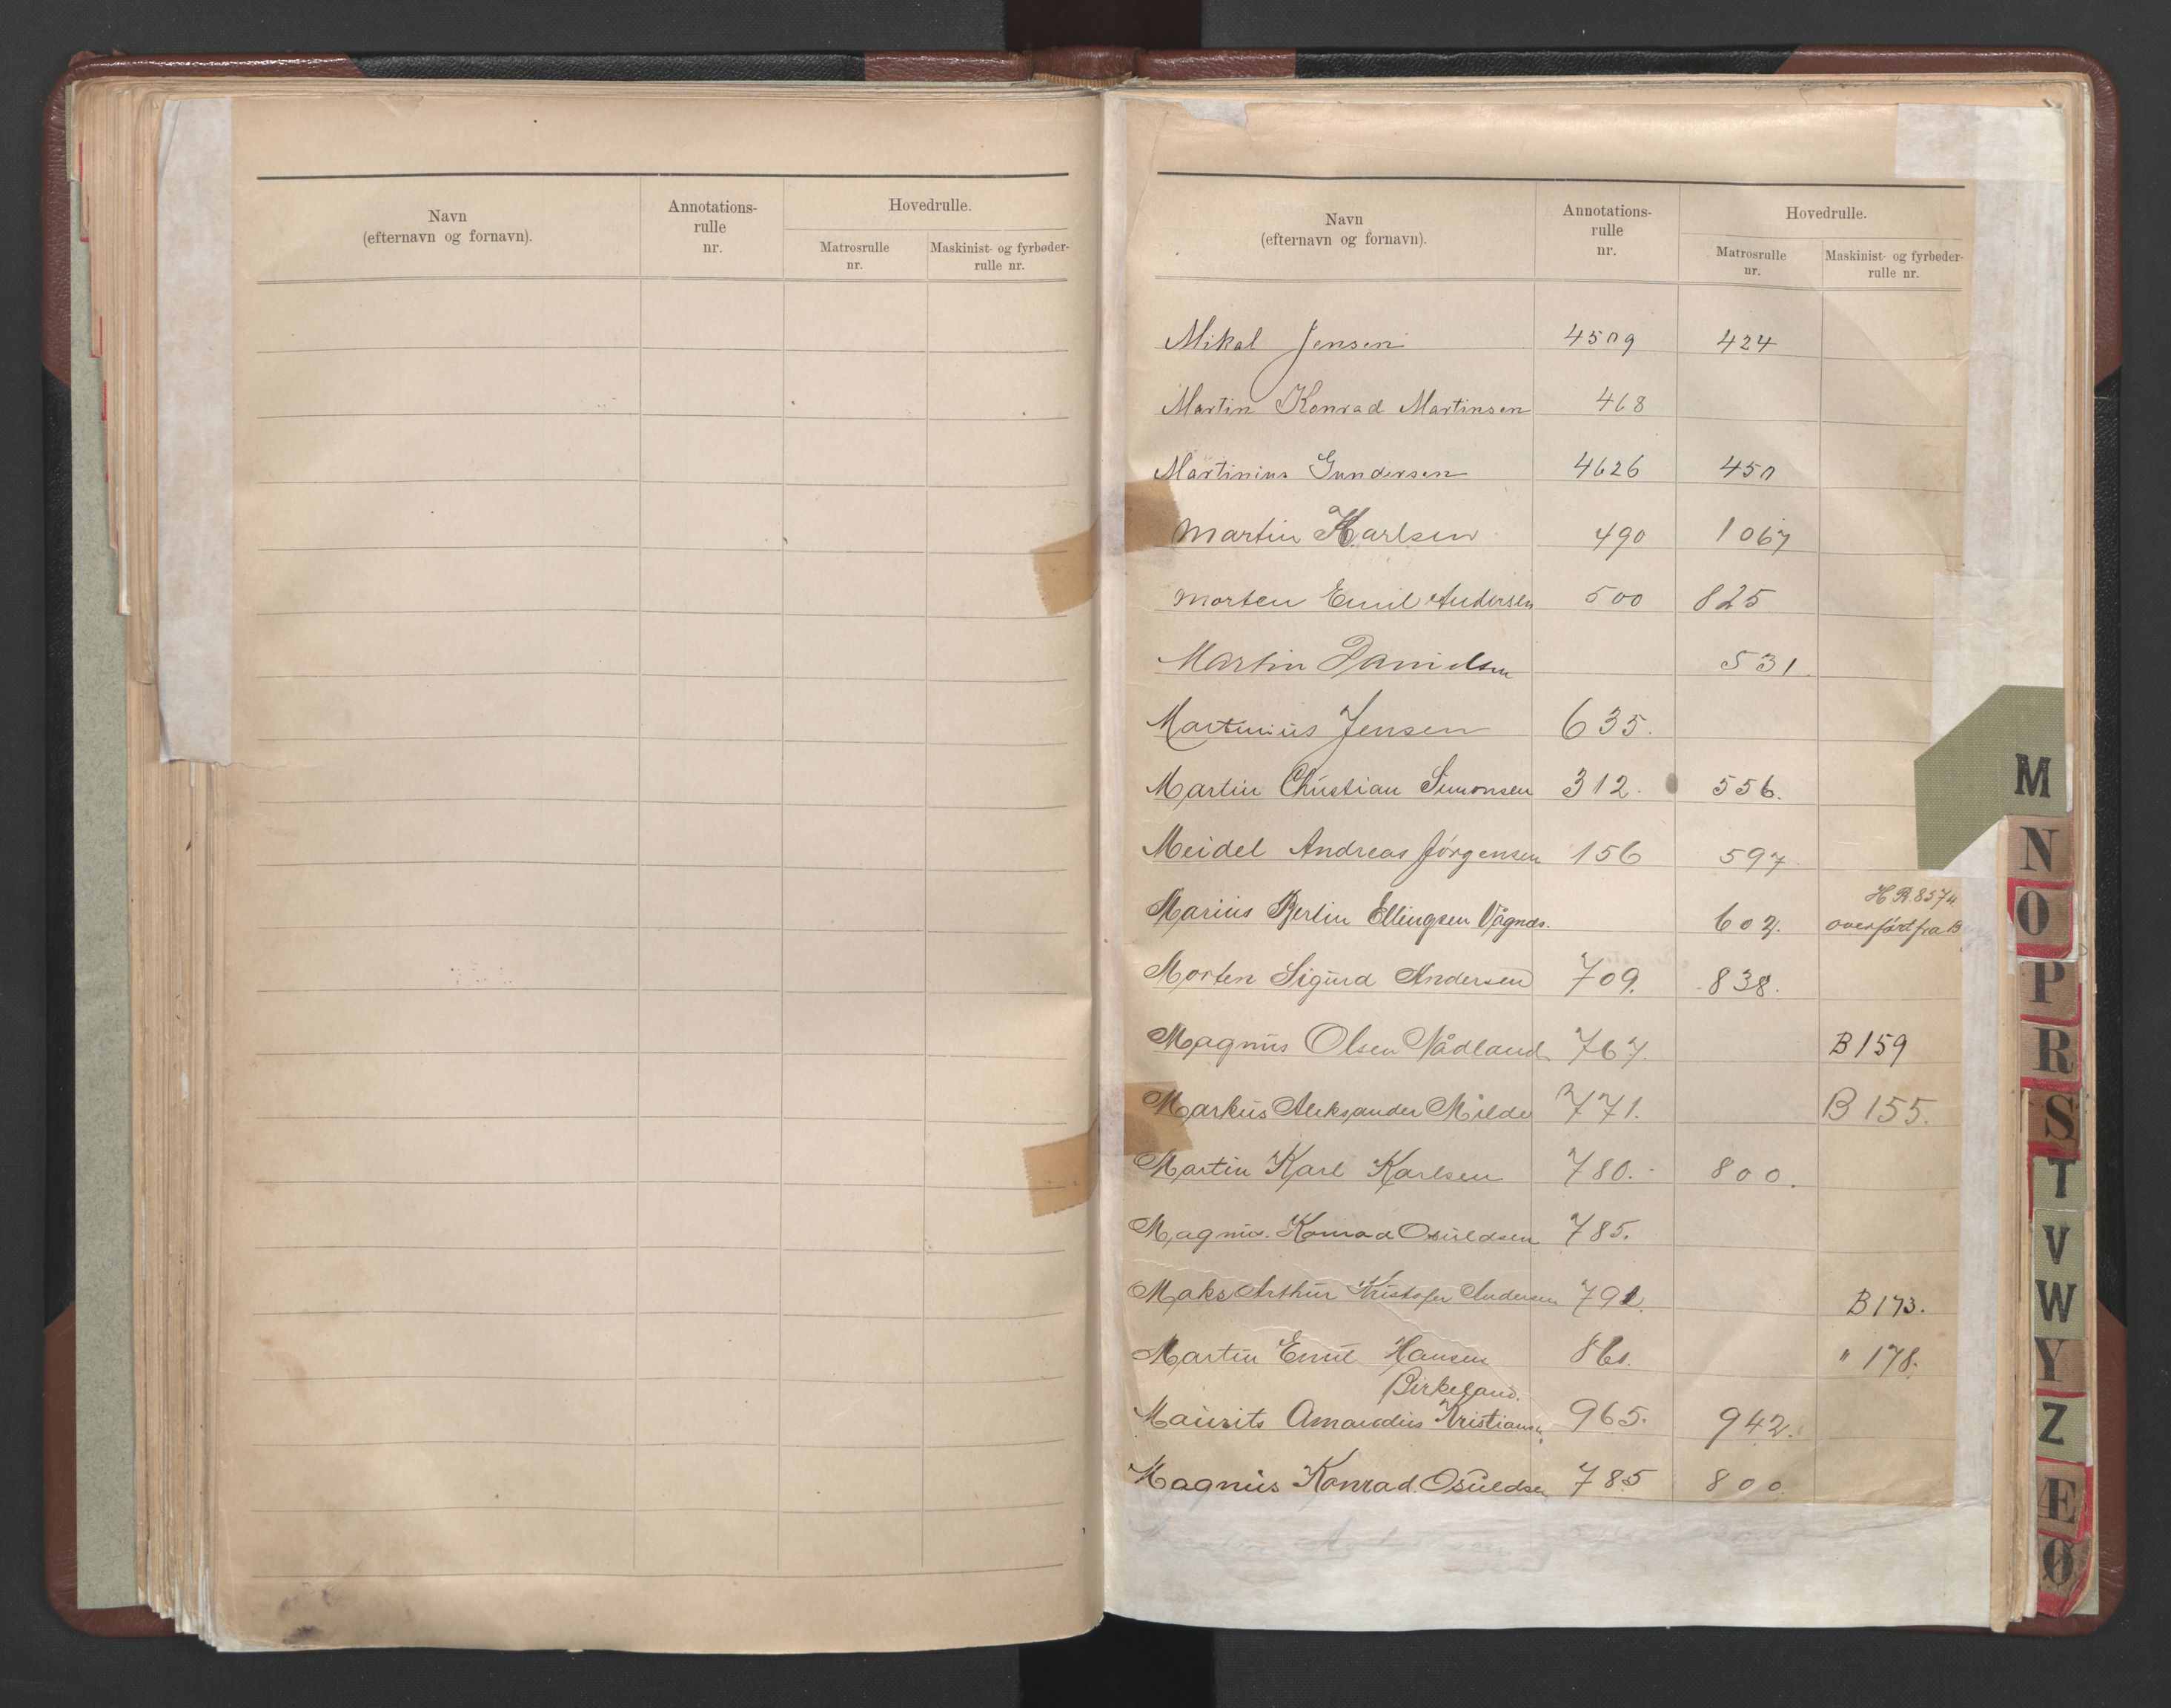 Navn
(efternavn og fornavn).
Annotations-
rulle
nr.
Hovedrulle.
Matrosrulle
nr.
Maskinist- og fyrbøder-
rulle nr.
Navn
(efternavn og fornavn).
Annotations-
rulle
nr.
Hovedrulle.
Matrosrulle
nr.
Maskinist- og fyrbøder-
rulle nr.
Mikal Jensen 4509 424
Martin Konrad Martinsen 468
Martinius Gundersen 4626 450
Martin Karlsen 490 1067
Morten Emil Andersen 500 825
Martin Danielsen 531.
Martinius Jensen 635.
Martin Christian Simonsen 312. 556.
Meidel Andreas Jörgensen 156 597.
H.R. 8574
Marius Berlin Ellingsen Vågnæs. 602. overført fra B
Morten Sigurd Andersen 709. 838.
Magnus Olsen Nådland 767. B 159
Markus Aleksander Milde 771. B 155.
Martin Karl Karlsen 780. 800.
Magnus Konrad Osuldsen 785.
Maks Arthur Kristofer Andersen 791. B 173.
Martin Emil Hansen 861. " 178.
Birkeland.
Maurits Amandus Kristiansen 965. 942.
Magnus Konrad Osuldsen 785 800.
M
N
O
P
R
S
T
V
W
Y
Z
Æ
Ø